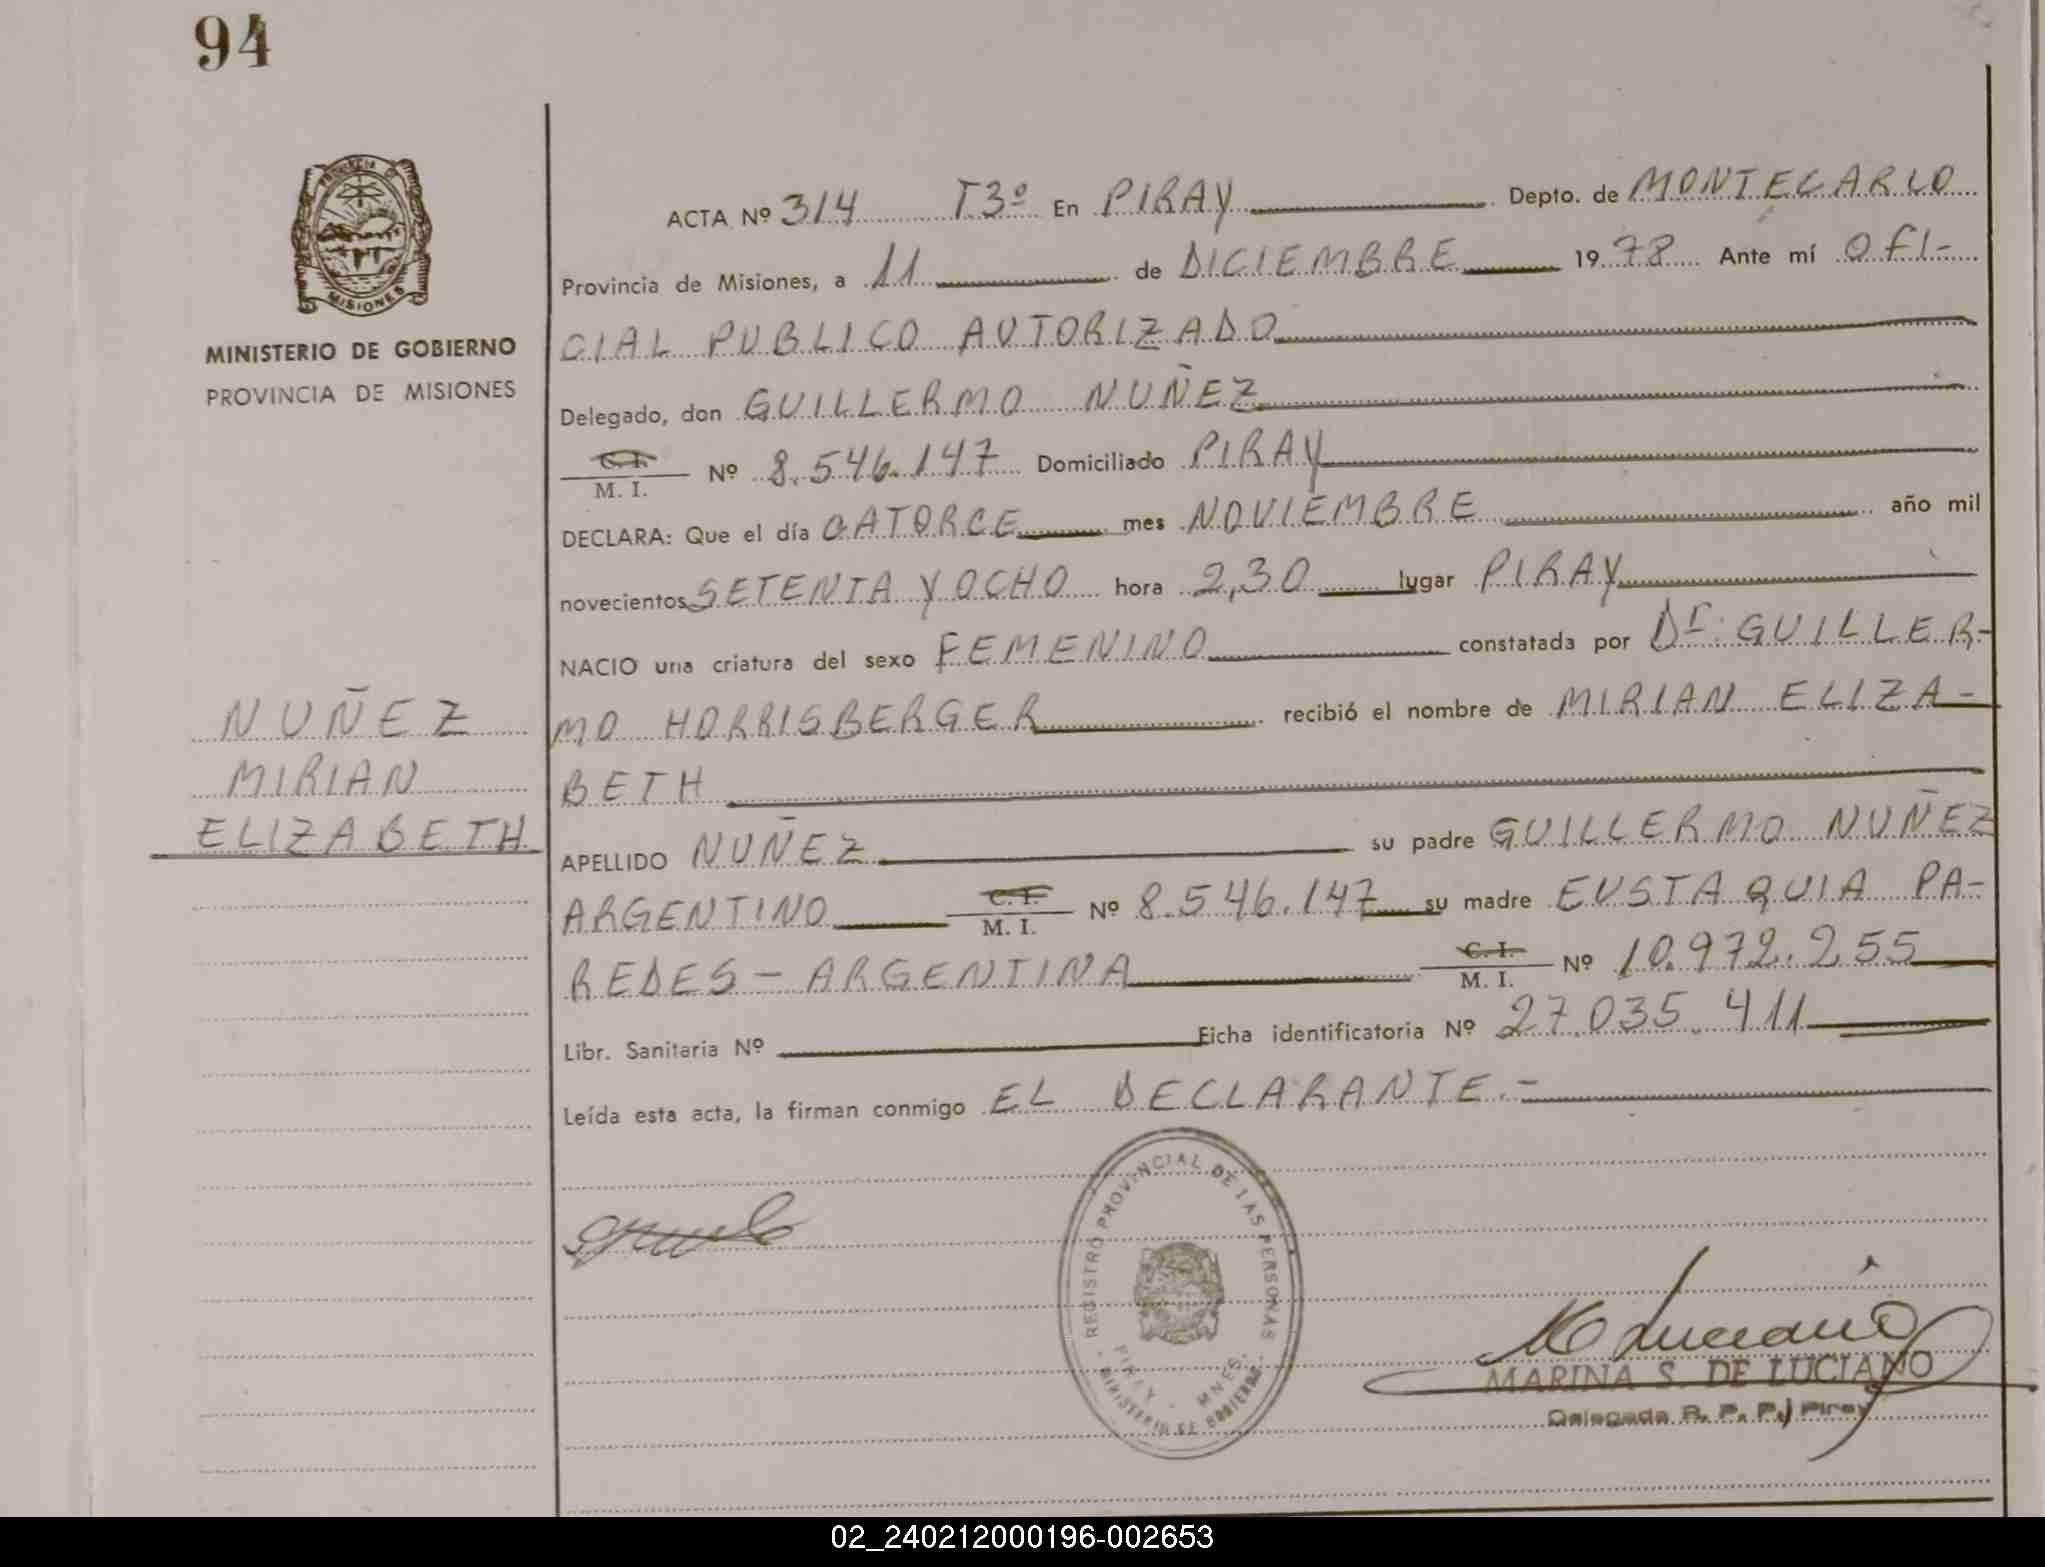 94
PROVINCIA
MISIONES
MINISTERIO DE GOBIERNO
PROVINCIA DE MISIONES
NUÑEZ
MIRIAN
ELIZABETH
ACTA Nº 314 T3º En PIRAY Depto. de MONTECARLO
Provincia de Misiones, a 11 de DICIEMBRE 1978 Ante mí OFI-
CIAL PUBLICO AUTORIZADO
Delegado, don GUILLERMO NUÑEZ
C.I.
M. I. Nº 8.546.147 Domiciliado PIRAY
DECLARA: Que el día CATORCE mes NOVIEMBRE año mil
novecientos SETENTA Y OCHO hora 2,30 lugar PIRAY
NACIO una criatura del sexo FEMENINO constatada por Dr. GUILLER-
MO HORRISBERGER recibió el nombre de MIRIAN ELIZA-
BETH
APELLIDO NUÑEZ su padre GUILLERMO NUÑEZ
ARGENTINO C.I. M. I. Nº 8.546.147 su madre EUSTAQUIA PA-
REDES - ARGENTINA C.I. M. I. Nº 10.972.255
Libr. Sanitaria Nº Ficha identificatoria Nº 27.035.411
Leída esta acta, la firman conmigo EL DECLARANTE.-
REGISTRO PROVINCIAL DE LAS PERSONAS
PIRAY - MNES.
MINISTERIO DE GOBIERNO
M Luciano
MARINA S. DE LUCIANO
Delegada R. P. P. Piray
02_240212000196-002653